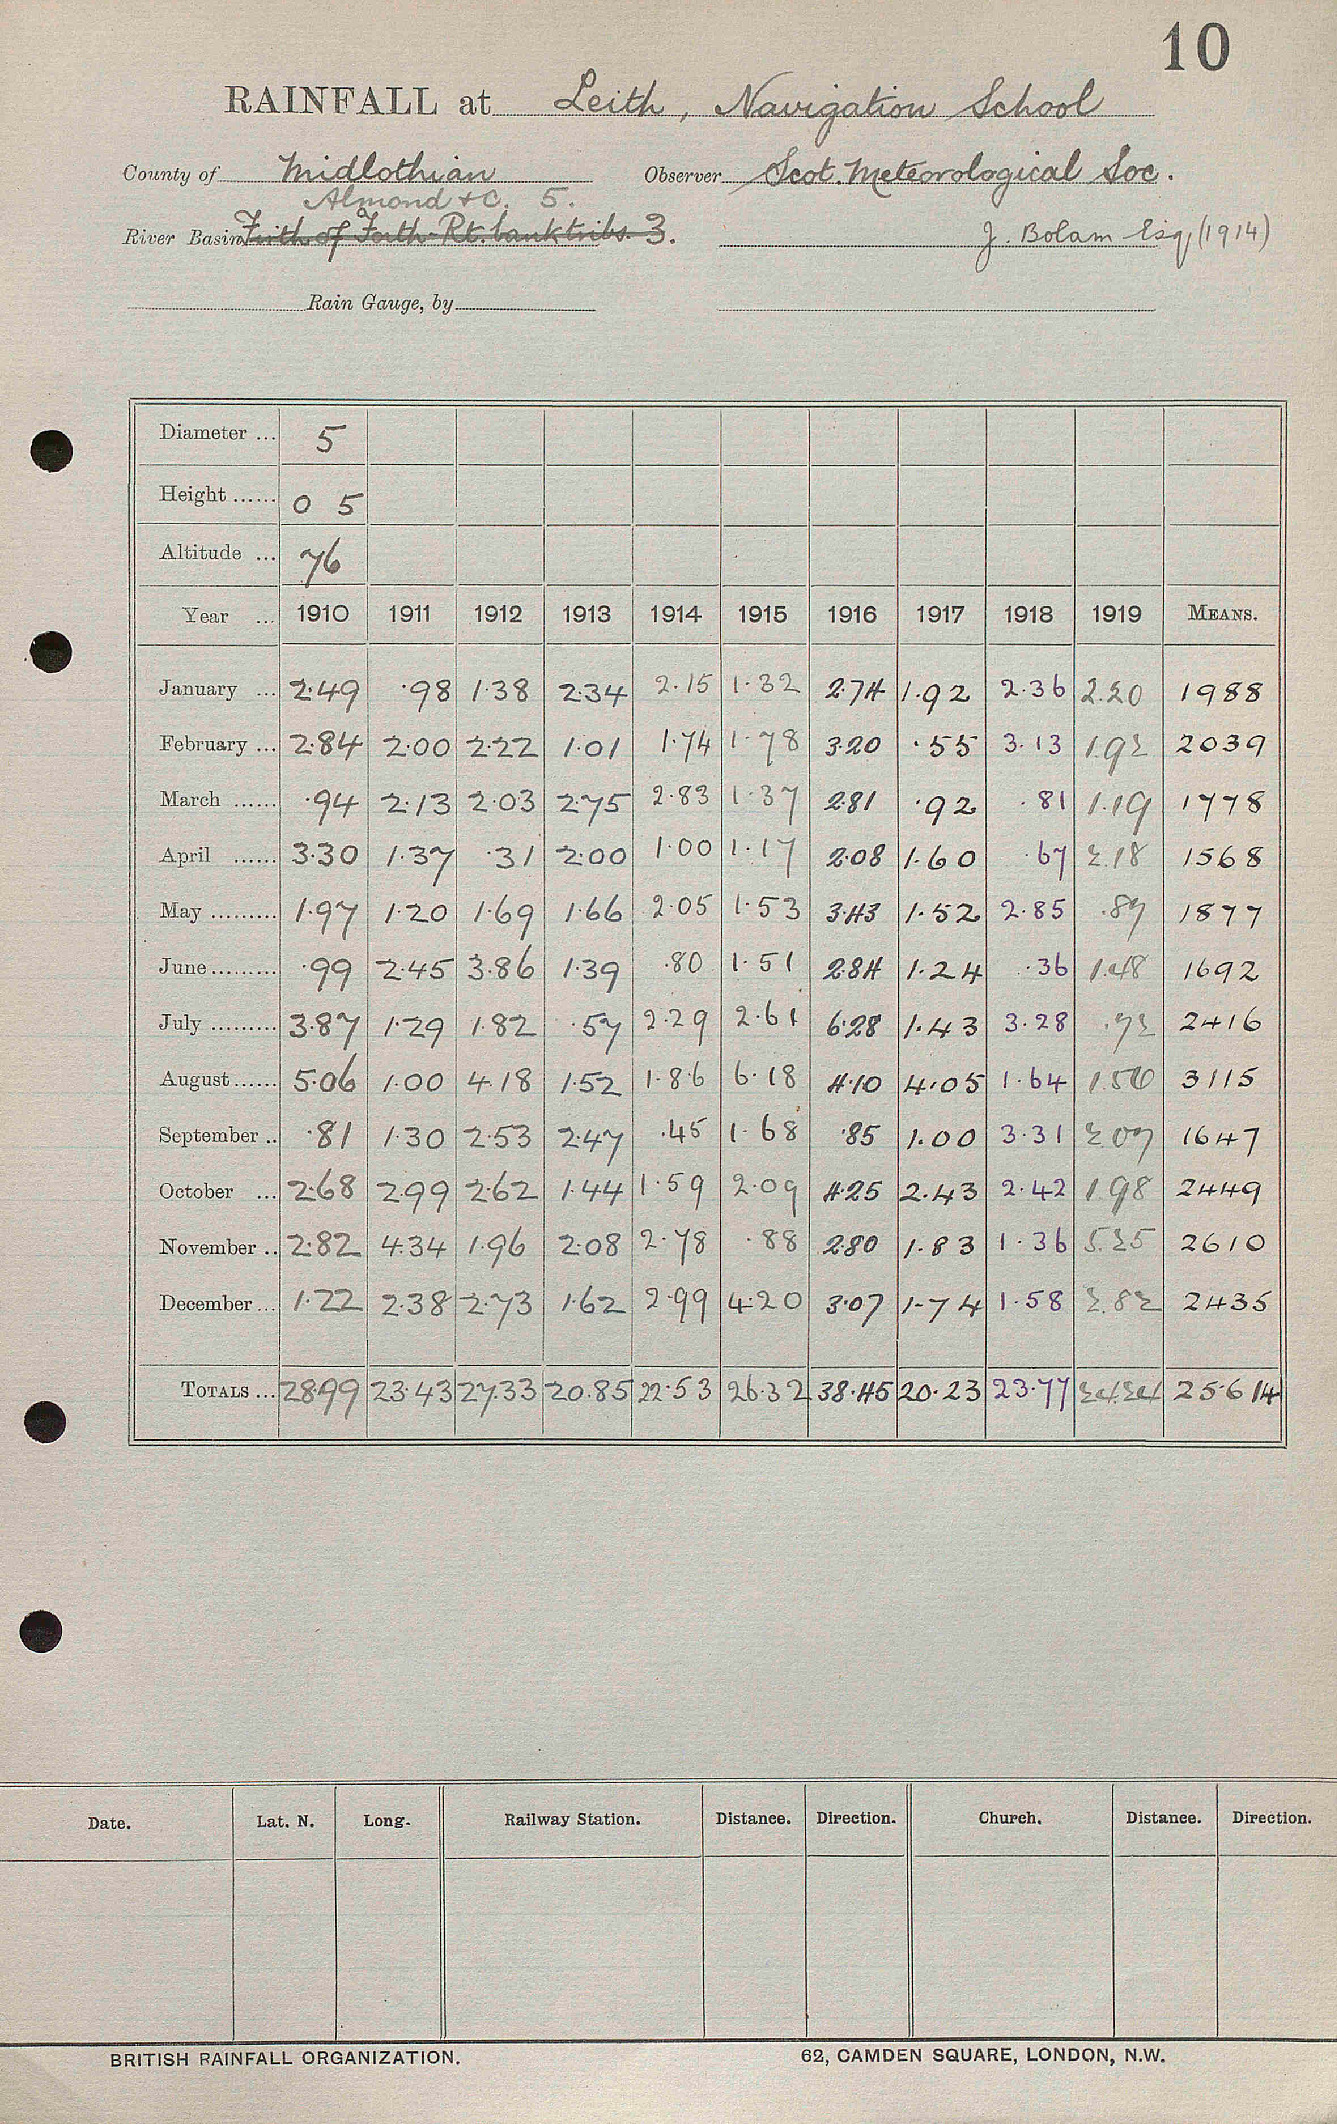 10
RAINFALL at Leith, Navigation School
County of Midlothian Observer Scot. Meteorological Soc.
Almond &c. 5.
River Basin Firth of Forth Rt. bank tribs. 3. J. Bolam Esq, (1914)
Rain Gauge, by
Diameter ... 5
Height ...... 0 5
Altitude ... 76
Year ... 1910 1911 1912 1913 1914 1915 1916 1917 1918 1919 MEANS.
January ... 2.49 .98 1.38 2.34 2.15 1.32 2.74 1.92 2.36 2.20 1988
February ... 2.84 2.00 2.22 1.01 1.74 1.78 3.20 .55 3.13 1.92 2039
March ...... .94 2.13 2.03 2.75 2.83 1.37 2.81 .92 .81 1.19 1778
April ...... 3.30 1.37 .31 2.00 1.00 1.17 2.08 1.60 .67 2.18 1568
May ......... 1.97 1.20 1.69 1.66 2.05 1.53 3.43 1.52 2.85 .87 1877
June ......... .99 2.45 3.86 1.39 .80 1.51 2.84 1.24 .36 1.48 1692
July ......... 3.87 1.29 1.82 .57 2.29 2.61 6.28 1.43 3.28 .72 2416
August ...... 5.06 1.00 4.18 1.52 1.86 6.18 4.10 4.05 1.64 1.56 3115
September .. .81 1.30 2.53 2.47 .45 1.68 .85 1.00 3.31 2.07 1647
October ... 2.68 2.99 2.62 1.44 1.59 2.09 4.25 2.43 2.42 1.98 2449
November .. 2.82 4.34 1.96 2.08 2.78 .88 2.80 1.83 1.36 5.25 2610
December ... 1.22 2.38 2.73 1.62 2.99 4.20 3.07 1.74 1.58 2.82 2435
TOTALS ... 28.99 23.43 27.33 20.85 22.53 26.32 38.45 20.23 23.77 24.24 25.614
Date. Lat. N. Long. Railway Station. Distance. Direction. Church. Distance. Direction.
BRITISH RAINFALL ORGANIZATION. 62, CAMDEN SQUARE, LONDON, N.W.